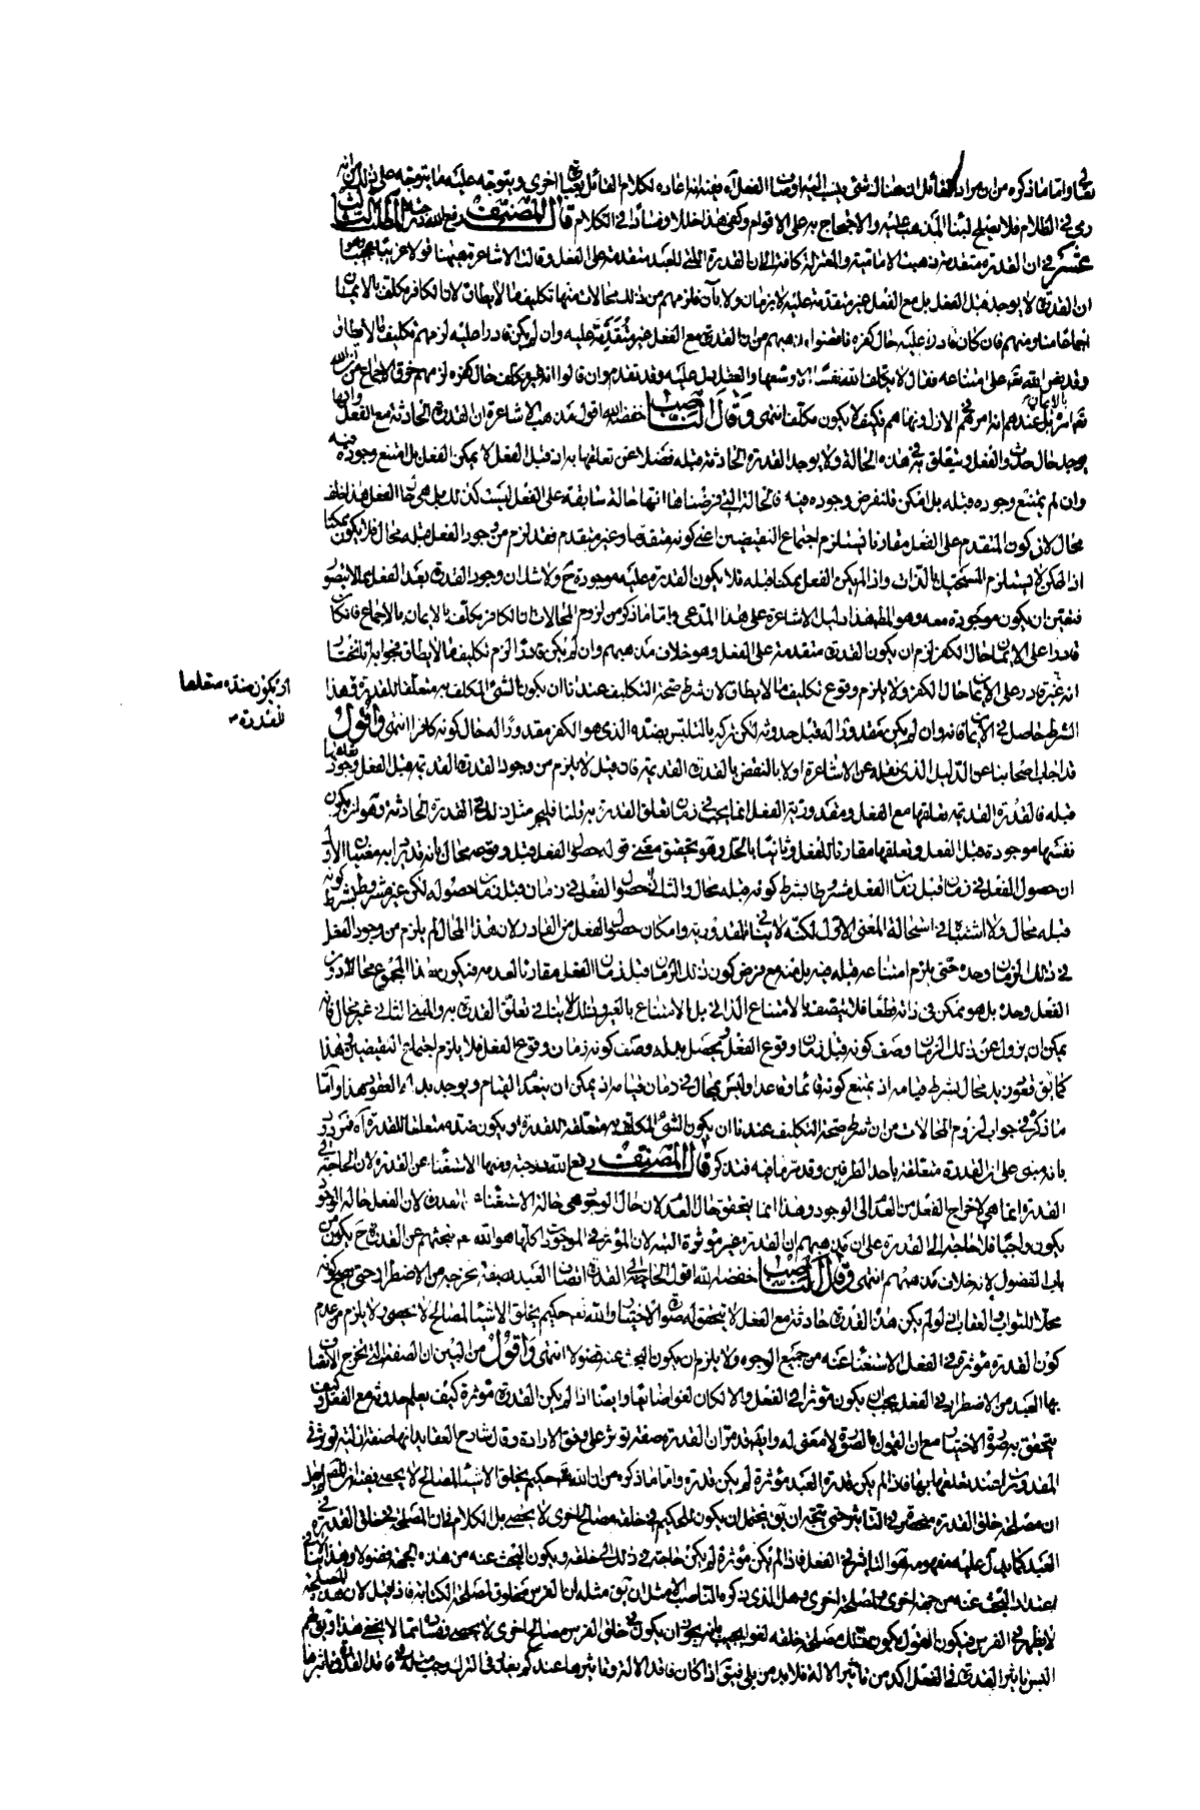 تعالى واما ما ذكره من ان مراد القائل ان هناك شئ ينسب اليه اوصاف الفعل آه ففيه انه اعاده لكلام القائل بعبارة اخرى ويتوجه عليه ما يتوجه على ذلك من انه
رمى في الظلام فلا يصلح لبناء المذهب عليه والاحتجاج به على الاقوام وكفى بهذا خللا وفسادا في الكلام قال المصنف رفع الله درجته المطلب الثالث
عشر في ان القدرة متقدمة ذهبت الامامية والمعتزلة كافة الى ان القدرة التى للعبد متقدمة على الفعل وقالت الاشاعرة هيهنا قولا غريبا عجيبا وهو
ان القدرة لا يوجد قبل الفعل بل مع الفعل غير متقدمة عليه لا بزمان ولا بآن فلزمهم من ذلك محالات منها تكليف ما لا يطاق لان الكافر مكلف بالايمان
اجماعا منا ومنهم فان كان قادرا عليه حال كفره ناقضوا مذهبهم من ان القدرة مع الفعل غير متقدمة عليه وان لم يكن قادرا عليه لزمهم تكليف ما لا يطاق
وقد نص الله تعالى على امتناعه فقال لا يكلف الله نفسا الا وسعها والعقل دل عليه وقد تقدم وان قالوا انه غير مكلف حال كفره لزمهم خرق الاجماع لان الله
تعالى امره بالايمان بل عندهم انه امرهم في الازل ونهاهم فكيف لا يكون مكلفا انتهى وقال الناصب خفضه الله اقول مذهب الاشاعرة ان القدرة الحادثة مع الفعل وانها
يوجد حال حدوث الفعل ويتعلق به في هذه الحالة ولا يوجد القدرة الحادثة قبله فضلا عن تعلقها به اذ قبل الفعل لا يمكن الفعل بل امتنع وجوده فيه
وان لم يمتنع وجوده قبله بل امكن فلنفرض وجوده فيه فالحالة التى فرضناها انها حالة سابقة على الفعل ليست كذلك بل هى حال الفعل هذا خلف
محال لان كون المتقدم على الفعل مقارنا يستلزم اجتماع النقيضين اعنى كونه متقدما وغير متقدم فقد لزم من وجود الفعل قبله محال فلا يكون ممكنا
اذ الممكن لا يستلزم المستحيل بالذات واذا لم يكن الفعل ممكنا قبله فلا يكون القدرة عليه موجودة ح ولا شك ان وجود القدرة بعد الفعل مما لا يتصور
فتعين ان يكون موجودة معه وهو المط هذا دليل الاشاعرة على هذا المدعى واما ما ذكر من لزوم المحالات بان الكافر مكلف بالايمان بالاجماع فان كان
قادرا على الايمان حال الكفر لزم ان يكون القدرة متقدمة على الفعل وهو خلاف مذهبهم وان لم يكن قادرا لزم تكليف ما لا يطاق فجوابه انا نختار
انه غير قادر على الايمان حال الكفر ولا يلزم وقوع تكليف ما لا يطاق لان شرط صحة التكليف عندنا ان يكون الشئ المكلف به متعلقا للقدرة فهذا
او يكون ضده متعلقا
للقدرة
الشرط حاصل في الايمان فانه وان لم يكن مقدورا له قبل حدوثه لكن تركه بالتلبس بضده الذى هو الكفر مقدورا له حال كونه كافرا انتهى واقول
قد اجاب اصحابنا عن الدليل الذى نقله عن الاشاعرة اولا بالنقض بالقدرة القديمة فان قيل لا يلزم من وجود القدرة القديمة قبل الفعل وجود تعلقها
قبله فالقدرة القديمة تعلقها مع الفعل ومقدورية الفعل انما يجب في زمان تعلق القدرة به قلنا فليجز مثل ذلك في القدرة الحادثة وهو ان يكون
نفسها موجودة قبل الفعل وتعلقها مقارنا للفعل وثانيا بالحل وهو تحقيق معنى قوله حصول الفعل قبل وقوعه محال بانه قد يراد به معنيان الاول
ان حصول الفعل في زمان قبل زمان الفعل مشروطا بشرط كونه قبله محال والثانى حصول الفعل في زمان قبل زمان حصوله لكن غير مشروط بشرط كونه
قبله محال ولا اشتباه في استحالة المعنى الاول لكنه لا ينافى المقدورية وامكان حصول الفعل من القادر لان هذا المحال لم يلزم من وجود الفعل
في ذلك الزمان وحده حتى يلزم امتناعه قبله فيه بل منه مع فرض كون ذلك الزمان قبل زمان الفعل مقارنا لعدمه فيكون هذا المجموع محالا دون
الفعل وحده بل هو ممكن في ذاته قطعا فلا يتصف بالامتناع الذاتى بل الامتناع بالغير وذلك لا ينافى تعلق القدرة به والمعنى الثانى غير محال فانه
يمكن ان يزول عن ذلك الزمان وصف كونه قبل زمان وقوع الفعل ويحصل بدله وصف كونه زمان وقوع الفعل فلا يلزم اجتماع النقيضين في هذا
كما يق قعود زيد محال بشرط قيامه اذ يمتنع كونه قائما وقاعدا وليس بمحال في زمان قيامه اذ يمكن ان ينعدم القيام ويوجد بدله القعود هذا واما
ما ذكره في جواب لزوم المحالات من ان شرط صحة التكليف عندنا ان يكون الشئ المكلف به متعلقة للقدرة او يكون ضده متعلقا للقدرة آه فمردود
بانه مبنى على ان القدرة متعلقة باحد الطرفين وقد مر ما فيه فتذكر قال المصنف رفع الله درجته ومنها الاستغناء عن القدرة لان الحاجة الى
القدرة انما هى لاخراج الفعل من العدم الى الوجود وهذا انما يتحقق حال العدم لان حال الوجود هى حالة الاستغناء عن القدرة لان الفعل حالة الوجود
يكون واجبا فلا حاجة الى القدرة على ان مذهبهم ان القدرة غير مؤثرة البتة لان المؤثر في الموجودات كلها هو الله تع فبحثهم عن القدرة ح يكون من
باب الفضول لانه خلاف مذهبهم انتهى وقال الناصب خفضه الله اقول الحاجة الى القدرة اتصاف العبد بصفة يخرجه من الاضطرار حتى يصح كونه
محلا للثواب والعقاب اذ لو لم يكن هذه القدرة حادثة مع الفعل لا يتحقق له صورة الاختيار والله تع حكيم يخلق الاشياء لمصالح لا تحصى ولا يلزم من عدم
كون القدرة مؤثرة في الفعل الاستغناء عنه من جميع الوجوه ولا يلزم ان يكون البحث عنه فضولا انتهى واقول من البين ان الصفة التى يخرج الاتصاف
بها العبد من الاضطرار في الفعل يجب ان يكون مؤثرا في الفعل والا لكان لغوا ضايعا وايضا اذا لم يكن القدرة مؤثرة كيف يعلم حدوثه مع الفعل وكيف
يتحقق به صورة الاختيار مع ان القول بالصورة لا معنى له وايضا قد مر ان القدرة صفة تؤثر على وفق الارادة وقال شارح العقايد انها صفة ازلية تؤثر في
المقدورات عند تعلقها بها فاذا لم يكن قدرة العبد مؤثرة لم يكن قدرة واما ما ذكره من ان الله تع حكيم يخلق الاشياء لمصالح لا يحصى ففيه انه
ان مصلحة خلق القدرة منحصر في التاثير حتى يتجه ان يق يحتمل ان يكون للحكيم في خلقه مصالح اخرى لا يحصى بل الكلام في ان المصلحة في خلق القدرة في
العبد كما يدل عليه مفهومه هو التاثير في الفعل فاذا لم يكن مؤثرة لم يكن حاجة في ذلك الى خلقه ويكون البحث عنه من هذه الجهة فضولا وهذا لا ينافى
اعتداد البحث عنه من جهة اخرى ومصلحة اخرى وهل الذى ذكره الناصب الا مثل ان يق مثلا ان الفرس مخلوق لمصلحة الكتابة فاذا قيل لان هذه المصلحة
لا يظهر في الفرس فيكون القول بكون تلك مصلحة خلقه لغوا يجيب بانه يجوز ان يكون في خلق الفرس مصالح اخرى لا يحصى وفساده مما لا يخفى هذا
اليس تاثير القدرة في الفعل اكد من تاثير الالة فلا بد من